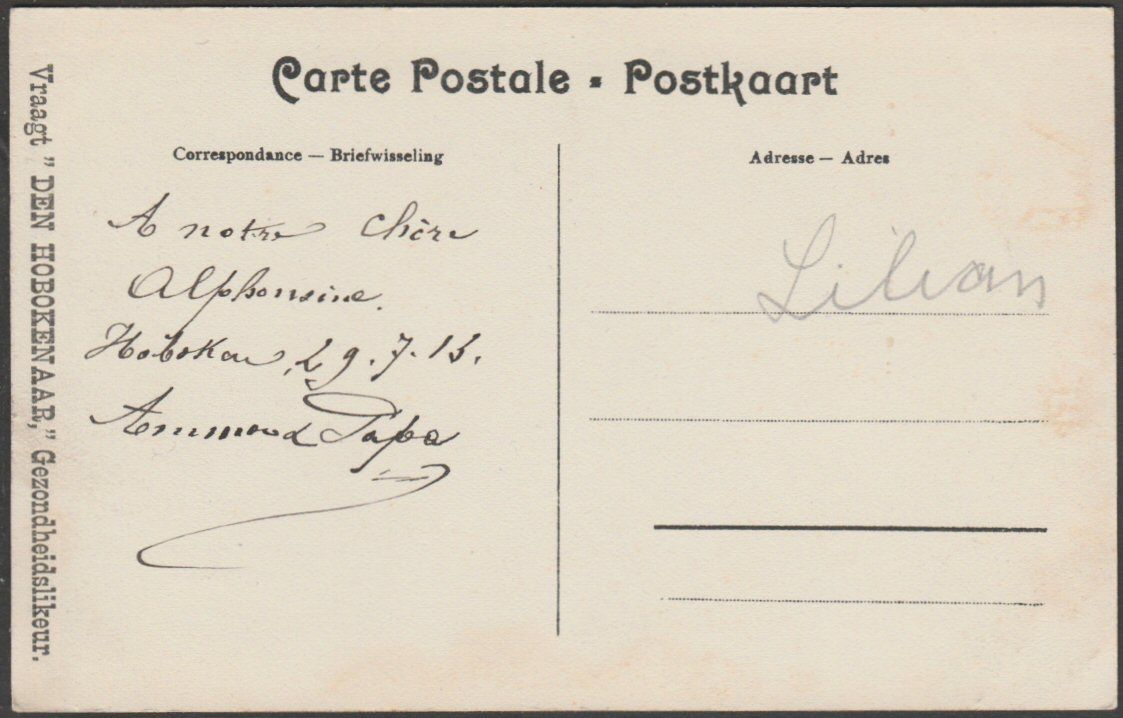 Carte Postale - Postkaart
Correspondance — Briefwisseling
A notre chère
Alphonsine.
Hoboken, 29.7.13.
Papa
Adresse — Adres
Lilian
Vraagt "DEN HOBOKENAAR," Gezondheidslikeur.